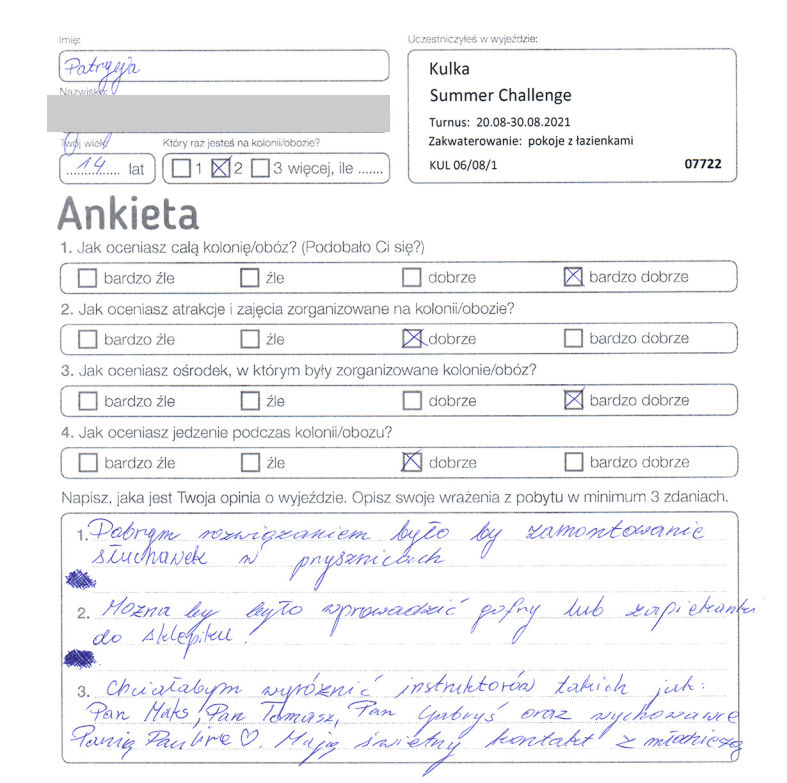 Imię:
Patrycja
Nazwisko:
Twój wiek:
14 lat
Który raz jesteś na kolonii/obozie?
1 2 3 więcej, ile .......
Uczestniczyłeś w wyjeździe:
Kulka
Summer Challenge
Turnus: 20.08-30.08.2021
Zakwaterowanie: pokoje z łazienkami
KUL 06/08/1 07722
Ankieta
1. Jak oceniasz całą kolonię/obóz? (Podobało Ci się?)
bardzo źle źle dobrze bardzo dobrze
2. Jak oceniasz atrakcje i zajęcia zorganizowane na kolonii/obozie?
bardzo źle źle dobrze bardzo dobrze
3. Jak oceniasz ośrodek, w którym były zorganizowane kolonie/obóz?
bardzo źle źle dobrze bardzo dobrze
4. Jak oceniasz jedzenie podczas kolonii/obozu?
bardzo źle źle dobrze bardzo dobrze
Napisz, jaka jest Twoja opinia o wyjeździe. Opisz swoje wrażenia z pobytu w minimum 3 zdaniach.
1. Dobrym rozwiązaniem było by zamontowanie
słuchawek w prysznicach
2. Można by było wprowadzić gofry lub zapiekanki
do sklepiku.
3. Chciałabym wyróżnić instruktorów takich jak:
Pan Maks, Pan Tomasz, Pan Gabryś oraz wychowawcę
Panią Paulinę ♡. Mają świetny kontakt z młodzieżą